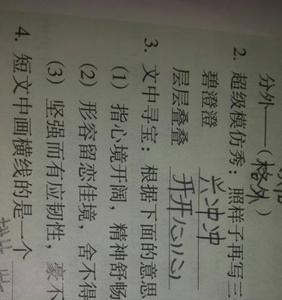 分外——(格外)
2. 超级模仿秀：照样子再写三
碧澄澄 兴冲冲
层层叠叠 开开心心
3. 文中寻宝：根据下面的意思
(1) 指心境开阔，精神舒畅
(2) 形容留恋佳境，舍不得
(3) 坚强而有应韧性，豪不
4. 短文中画横线的是一个